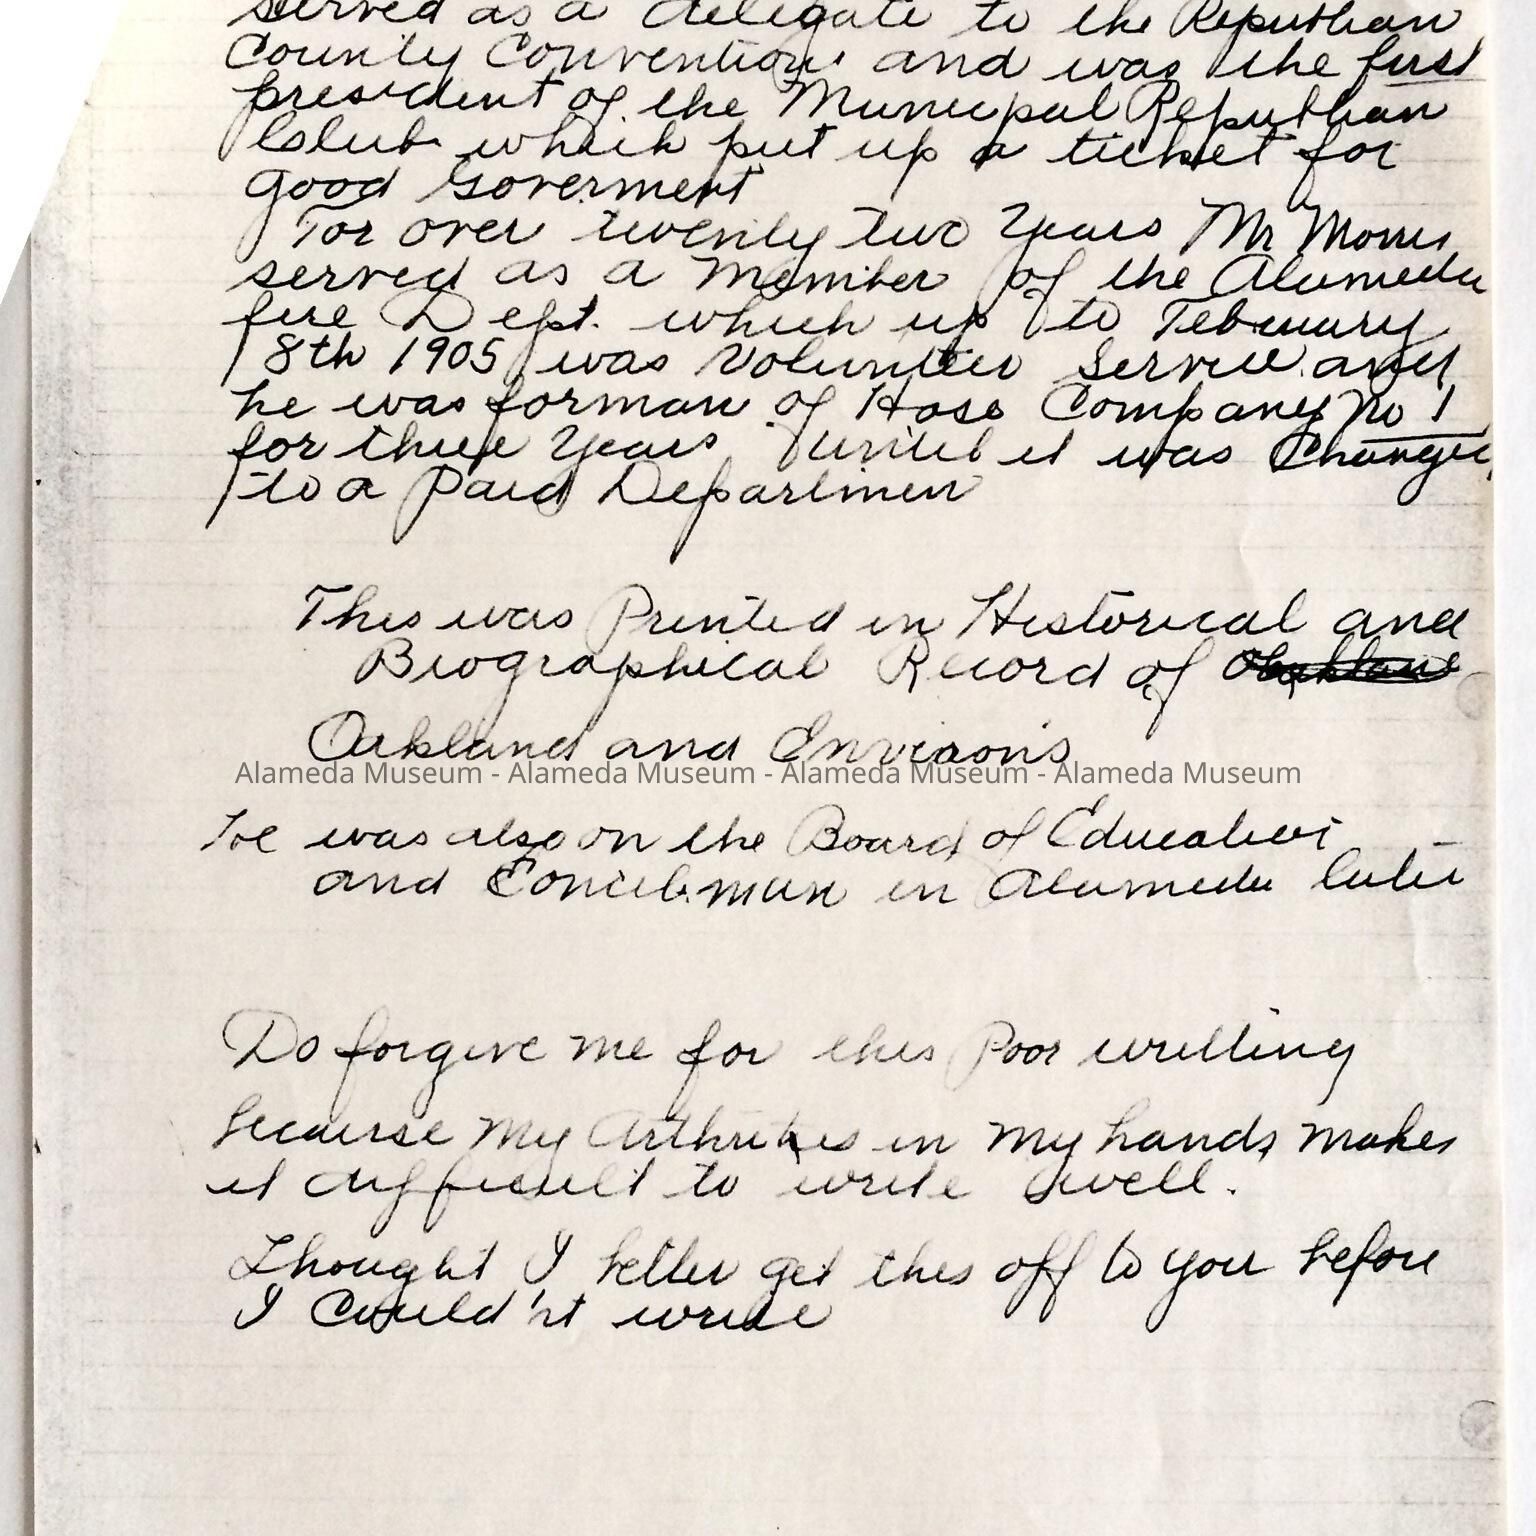 served as a delegate to the Republican
County Convention and was the first
president of the Municipal Republican
Club which put up a ticket for
good Goverment
For over twenty two years Mr Morris
served as a Member of the Alameda
fire Dept. which up to February
8th 1905 was Volunteer Service and
he was forman of Hose Company No 1
for three years until it was Changed
to a Paid Departmen
This was Printed in Historical and
Biographical Record of
Oakland and Environs
Alameda Museum - Alameda Museum - Alameda Museum - Alameda Museum
he was also on the Board of Education
and Concilman in Alameda later
Do forgive me for this Poor writting
because my Arthrities in my hands makes
it difficult to write well.
Thought I better get this off to you before
I Could'nt write